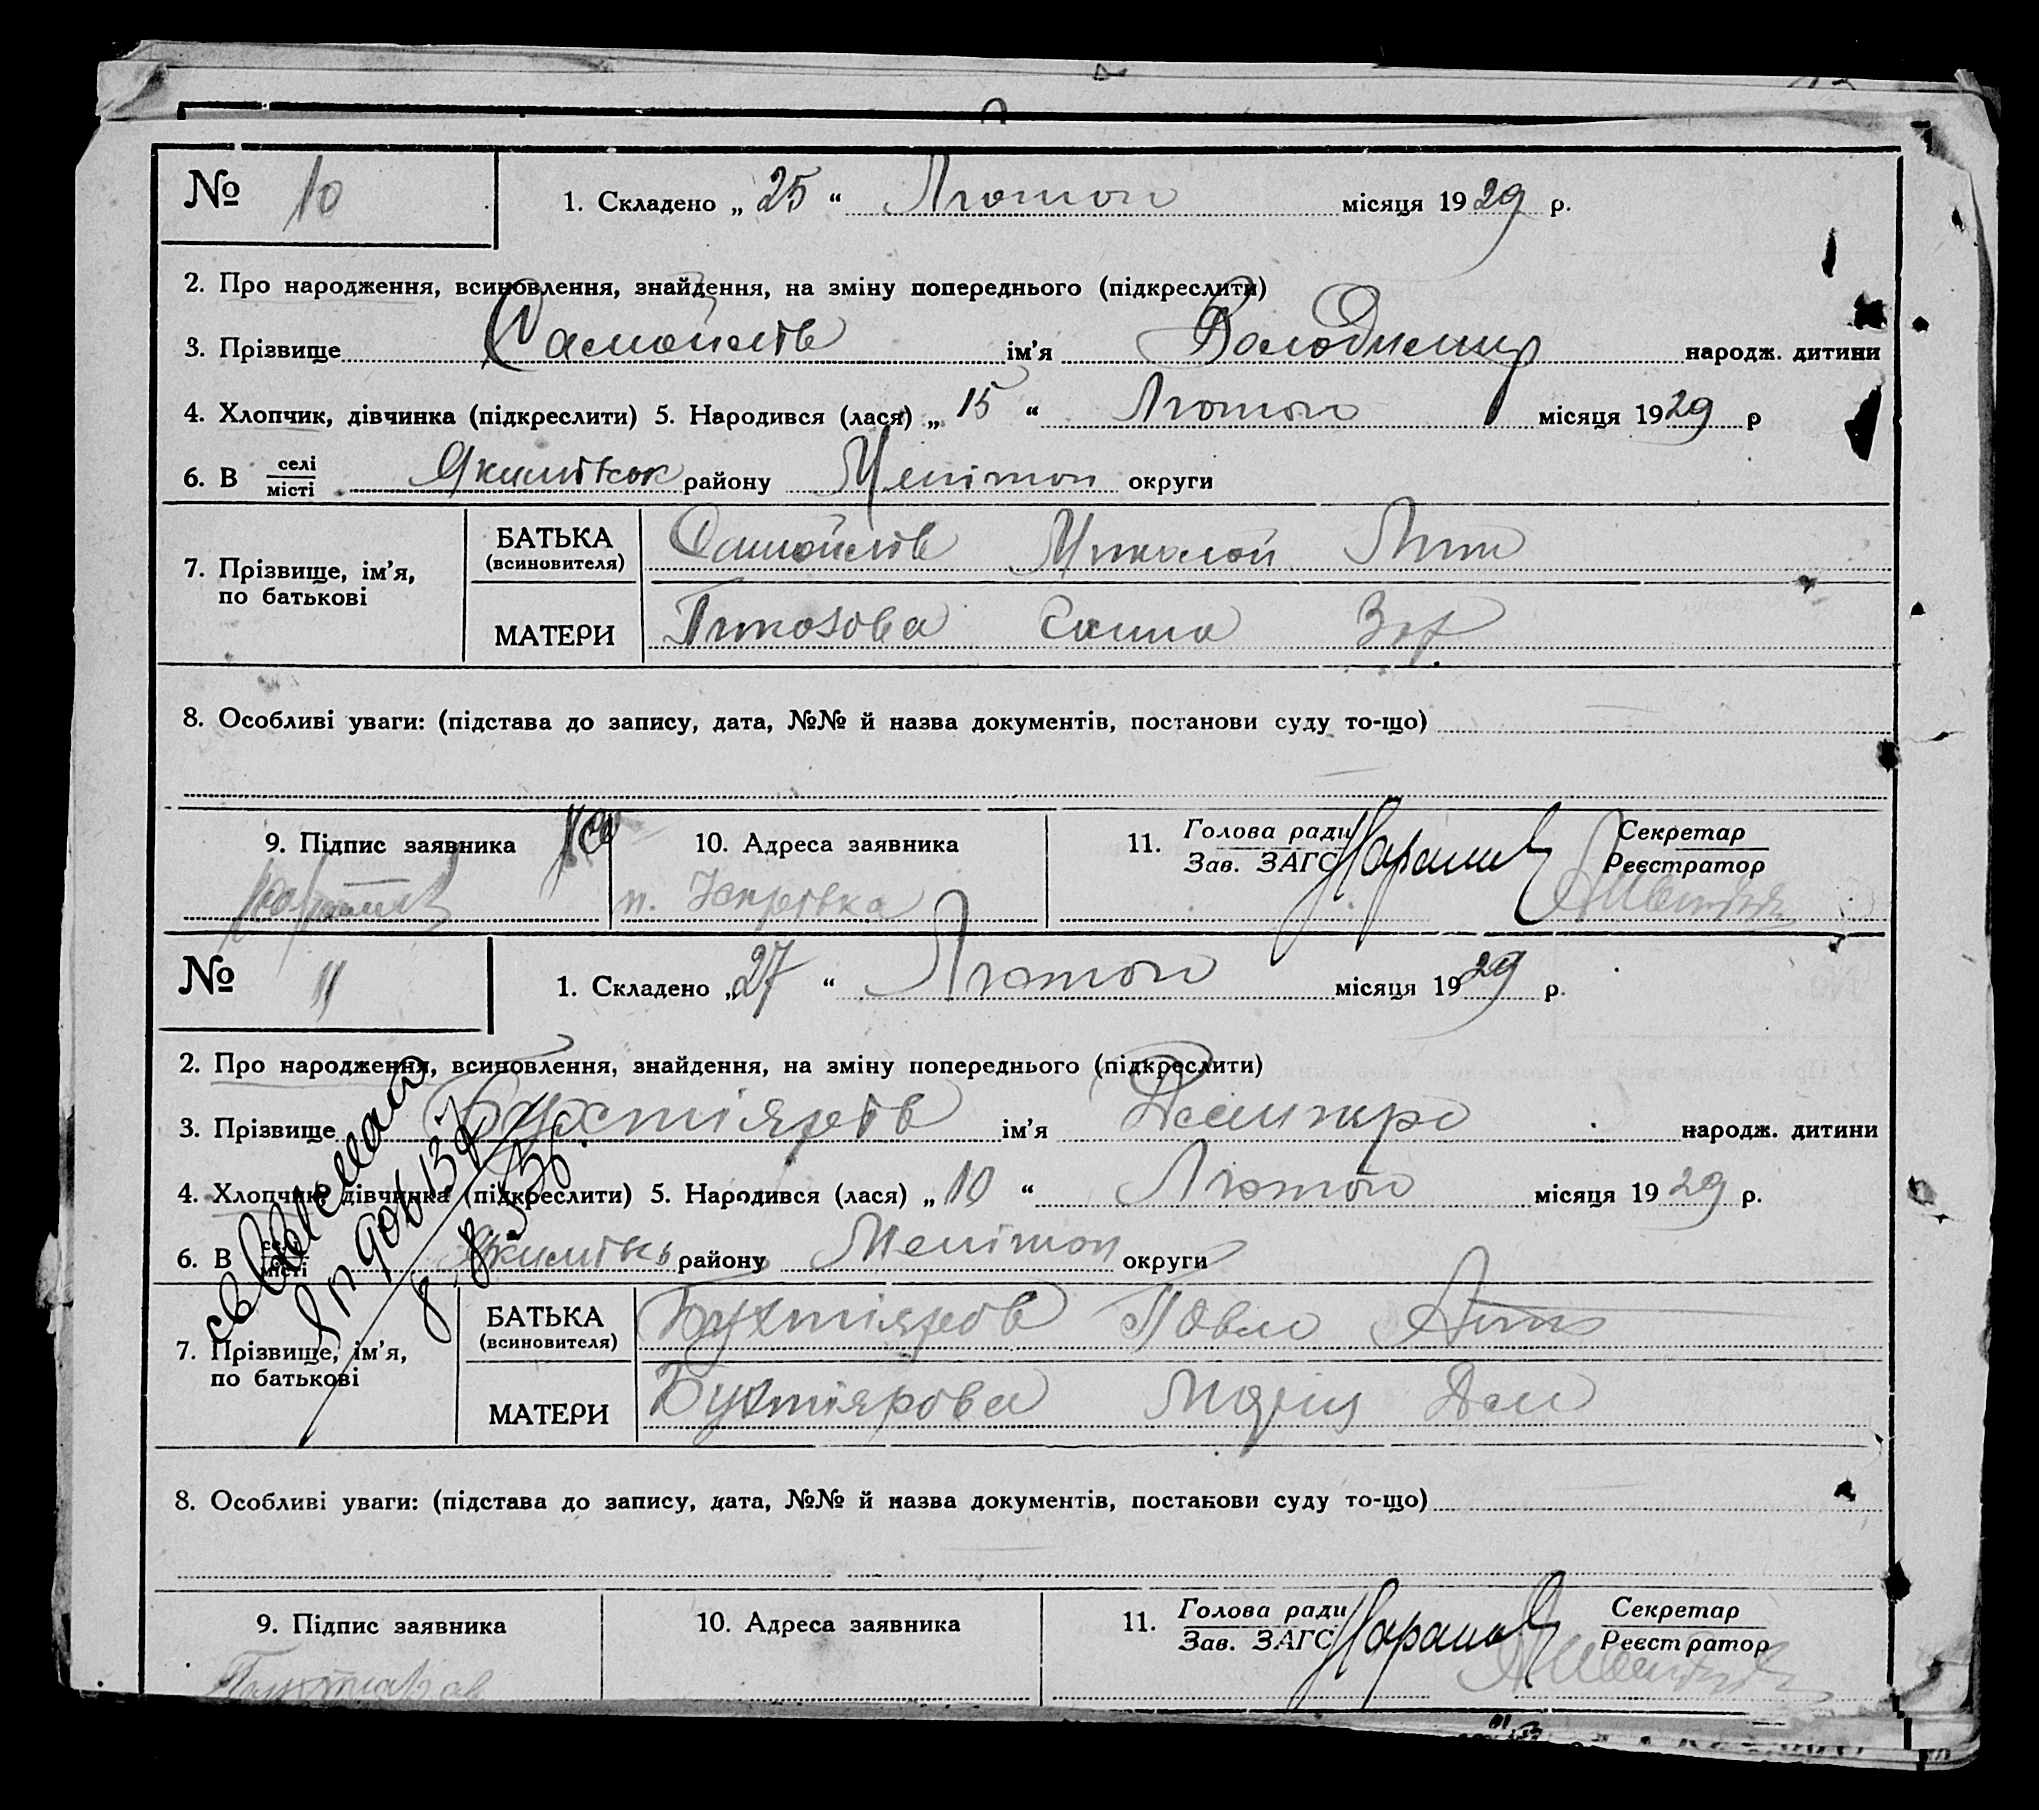 № 10 1. Складено „ 25 “ Лютого місяця 1929 р.
2. Про народження, всиновлення, знайдення, на зміну попереднього (підкреслити)
3. Прізвище Самойлів ім’я Володимир народж. дитини
4. Хлопчик, дівчинка (підкреслити) 5. Народився (лася) „ 15 “ Лютого місяця 1929 р
6. В селі місті Якимівськ району Меліт округи
7. Прізвище, ім’я, по батькові
БАТЬКА (всиновителя) Самойлів Миколай
МАТЕРИ Ганна Зах
8. Особливі уваги: (підстава до запису, дата, №№ й назва документів, постанови суду то-що)
9. Підпис заявника 10. Адреса заявника 11. Голова ради Зав. ЗАГС Секретар Реєстратор
№ 11 1. Складено „ 27 “ Лютого місяця 1929 р.
2. Про народження, всиновлення, знайдення, на зміну попереднього (підкреслити)
3. Прізвище Бухтіярів ім’я Дмитро народж. дитини
4. Хлопчик, дівчинка (підкреслити) 5. Народився (лася) „ 10 “ Лютого місяця 1929 р.
6. В селі місті Якимівсь району Мелітоп округи
7. Прізвище, ім’я, по батькові
БАТЬКА (всиновителя) Бухтіяров Павло
МАТЕРИ Бухтіярова Дем
8. Особливі уваги: (підстава до запису, дата, №№ й назва документів, постанови суду то-що)
9. Підпис заявника 10. Адреса заявника 11. Голова ради Зав. ЗАГС Секретар Реєстратор